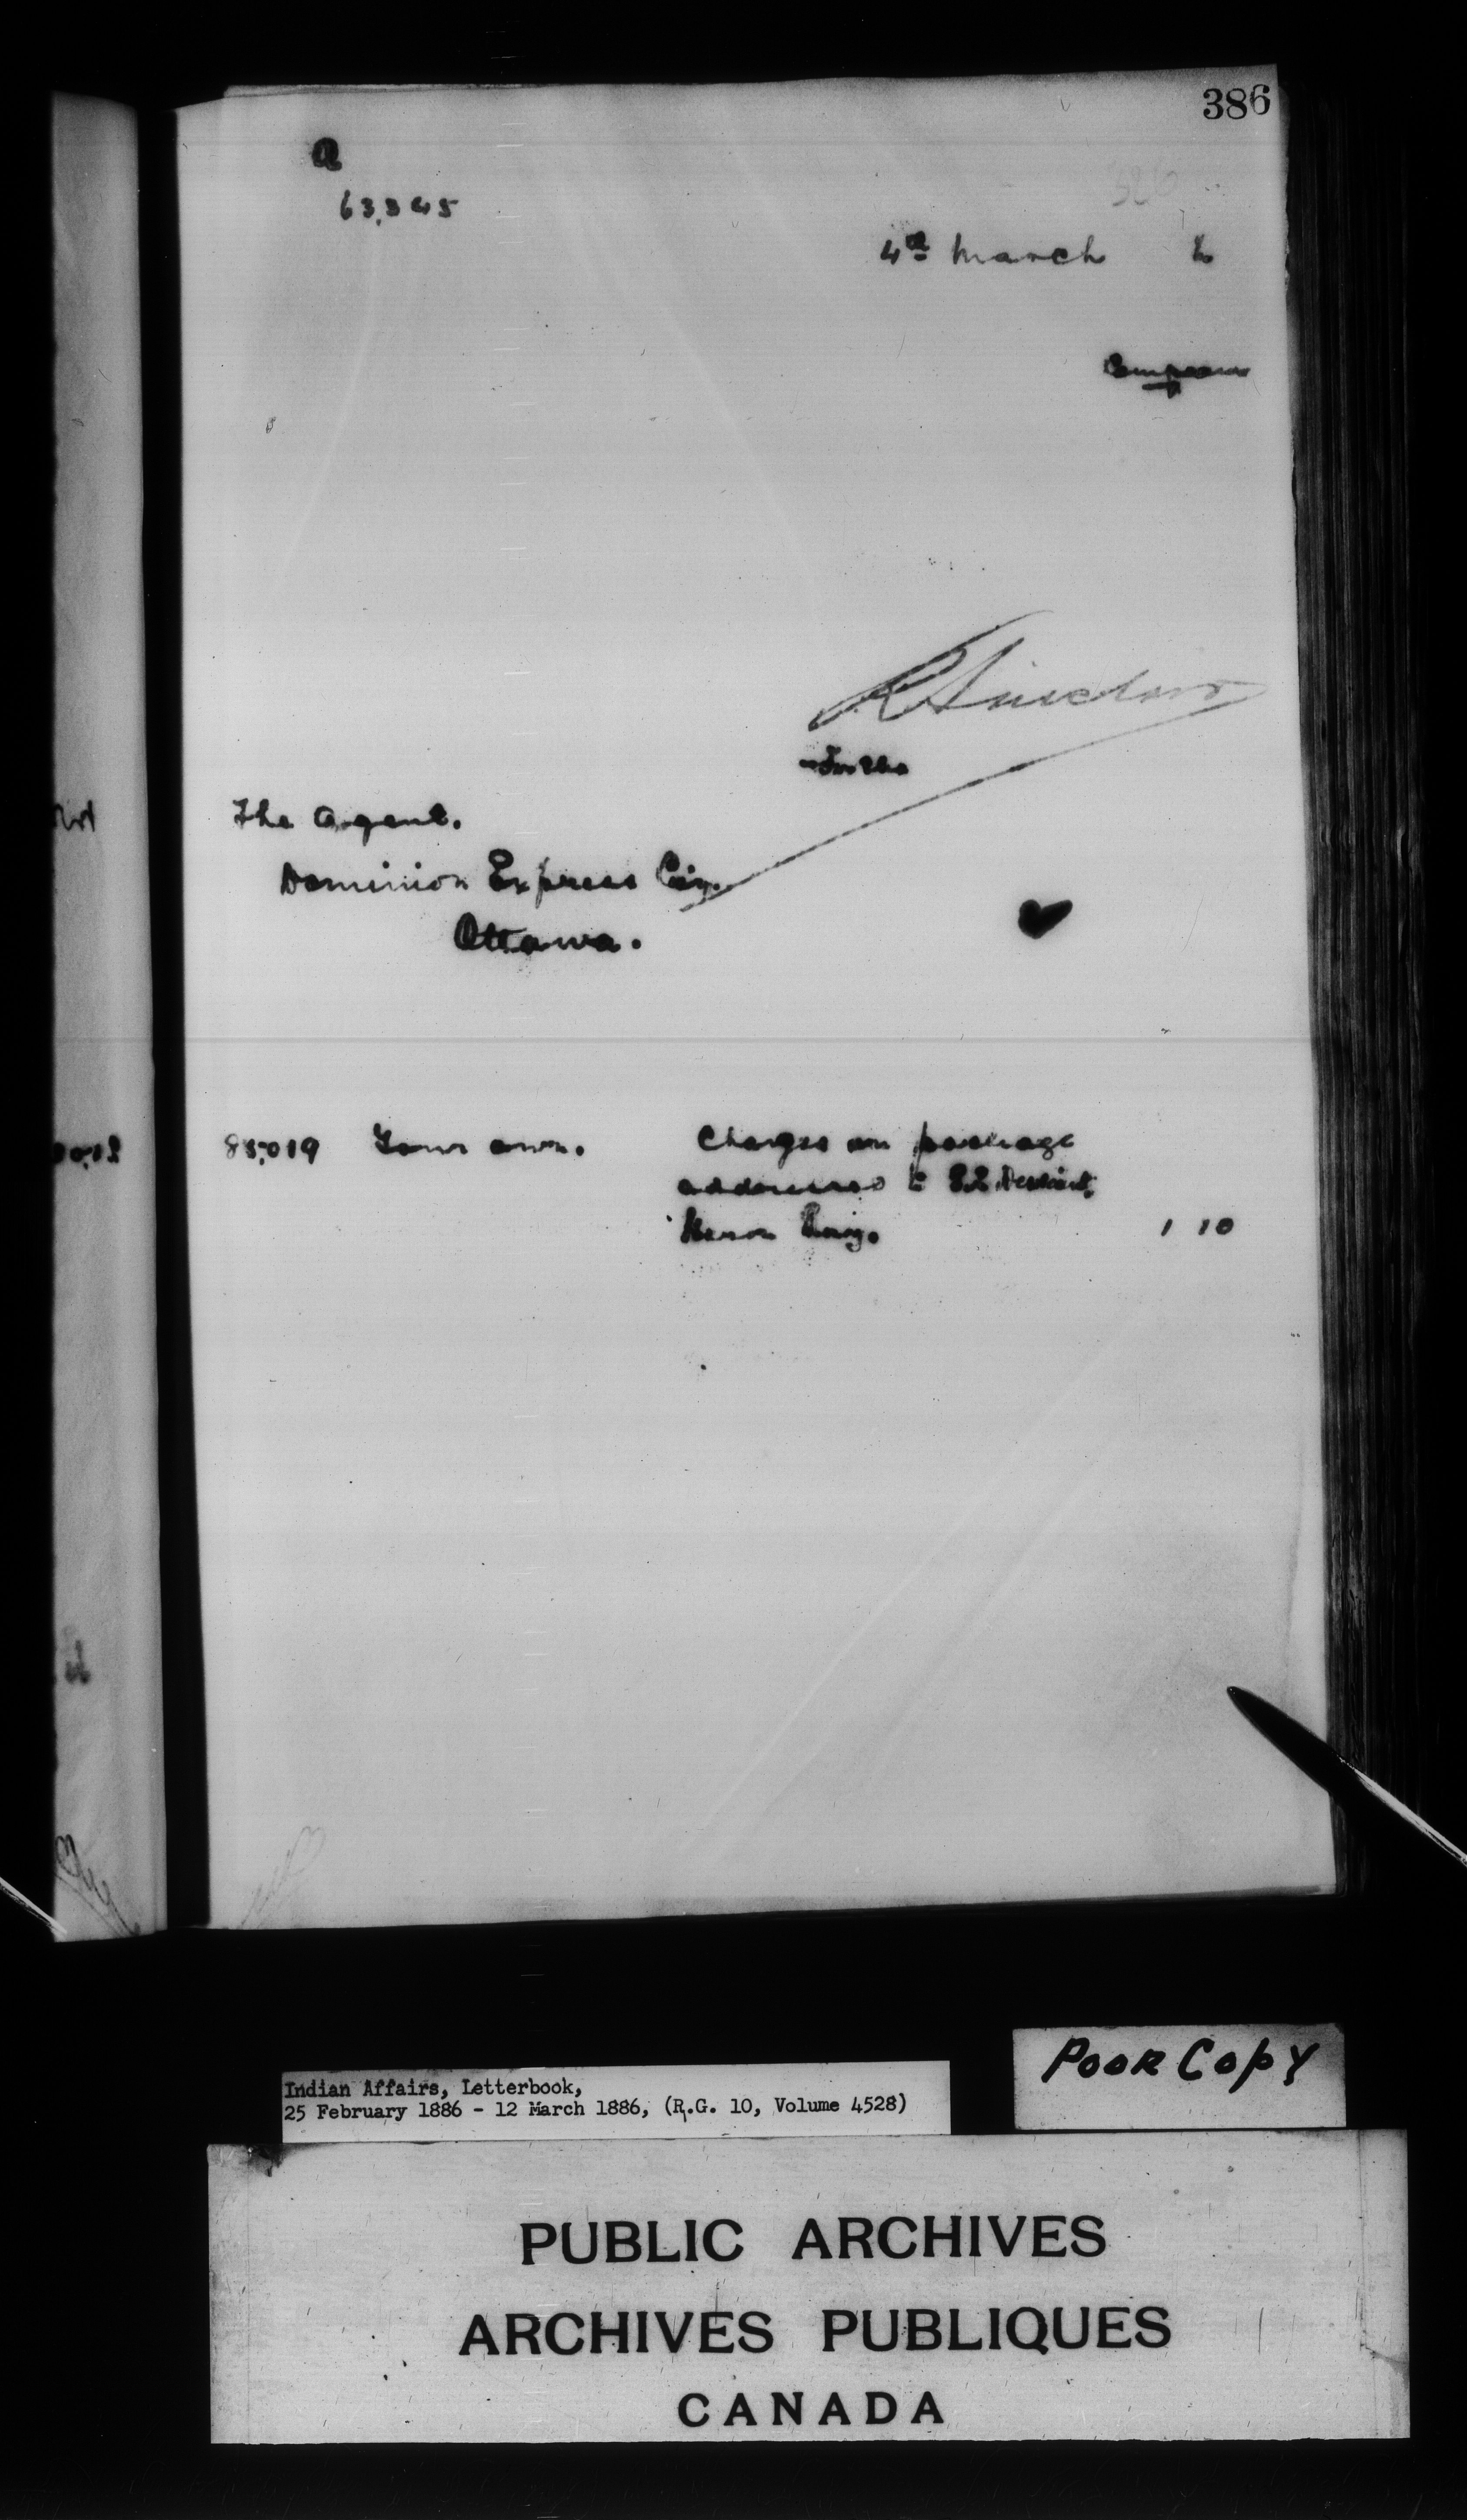 386
a
63,345
4th March 6
Company
R Sinclair
For the
The Agent.
Dominion Express Coy.
Ottawa.
85,019 Your own. Charges on package
addressed to
Heron Bay. 1 10
Indian Affairs, Letterbook,
25 February 1886 - 12 March 1886, (R.G. 10, Volume 4528)
POOR COPY
PUBLIC ARCHIVES
ARCHIVES PUBLIQUES
CANADA